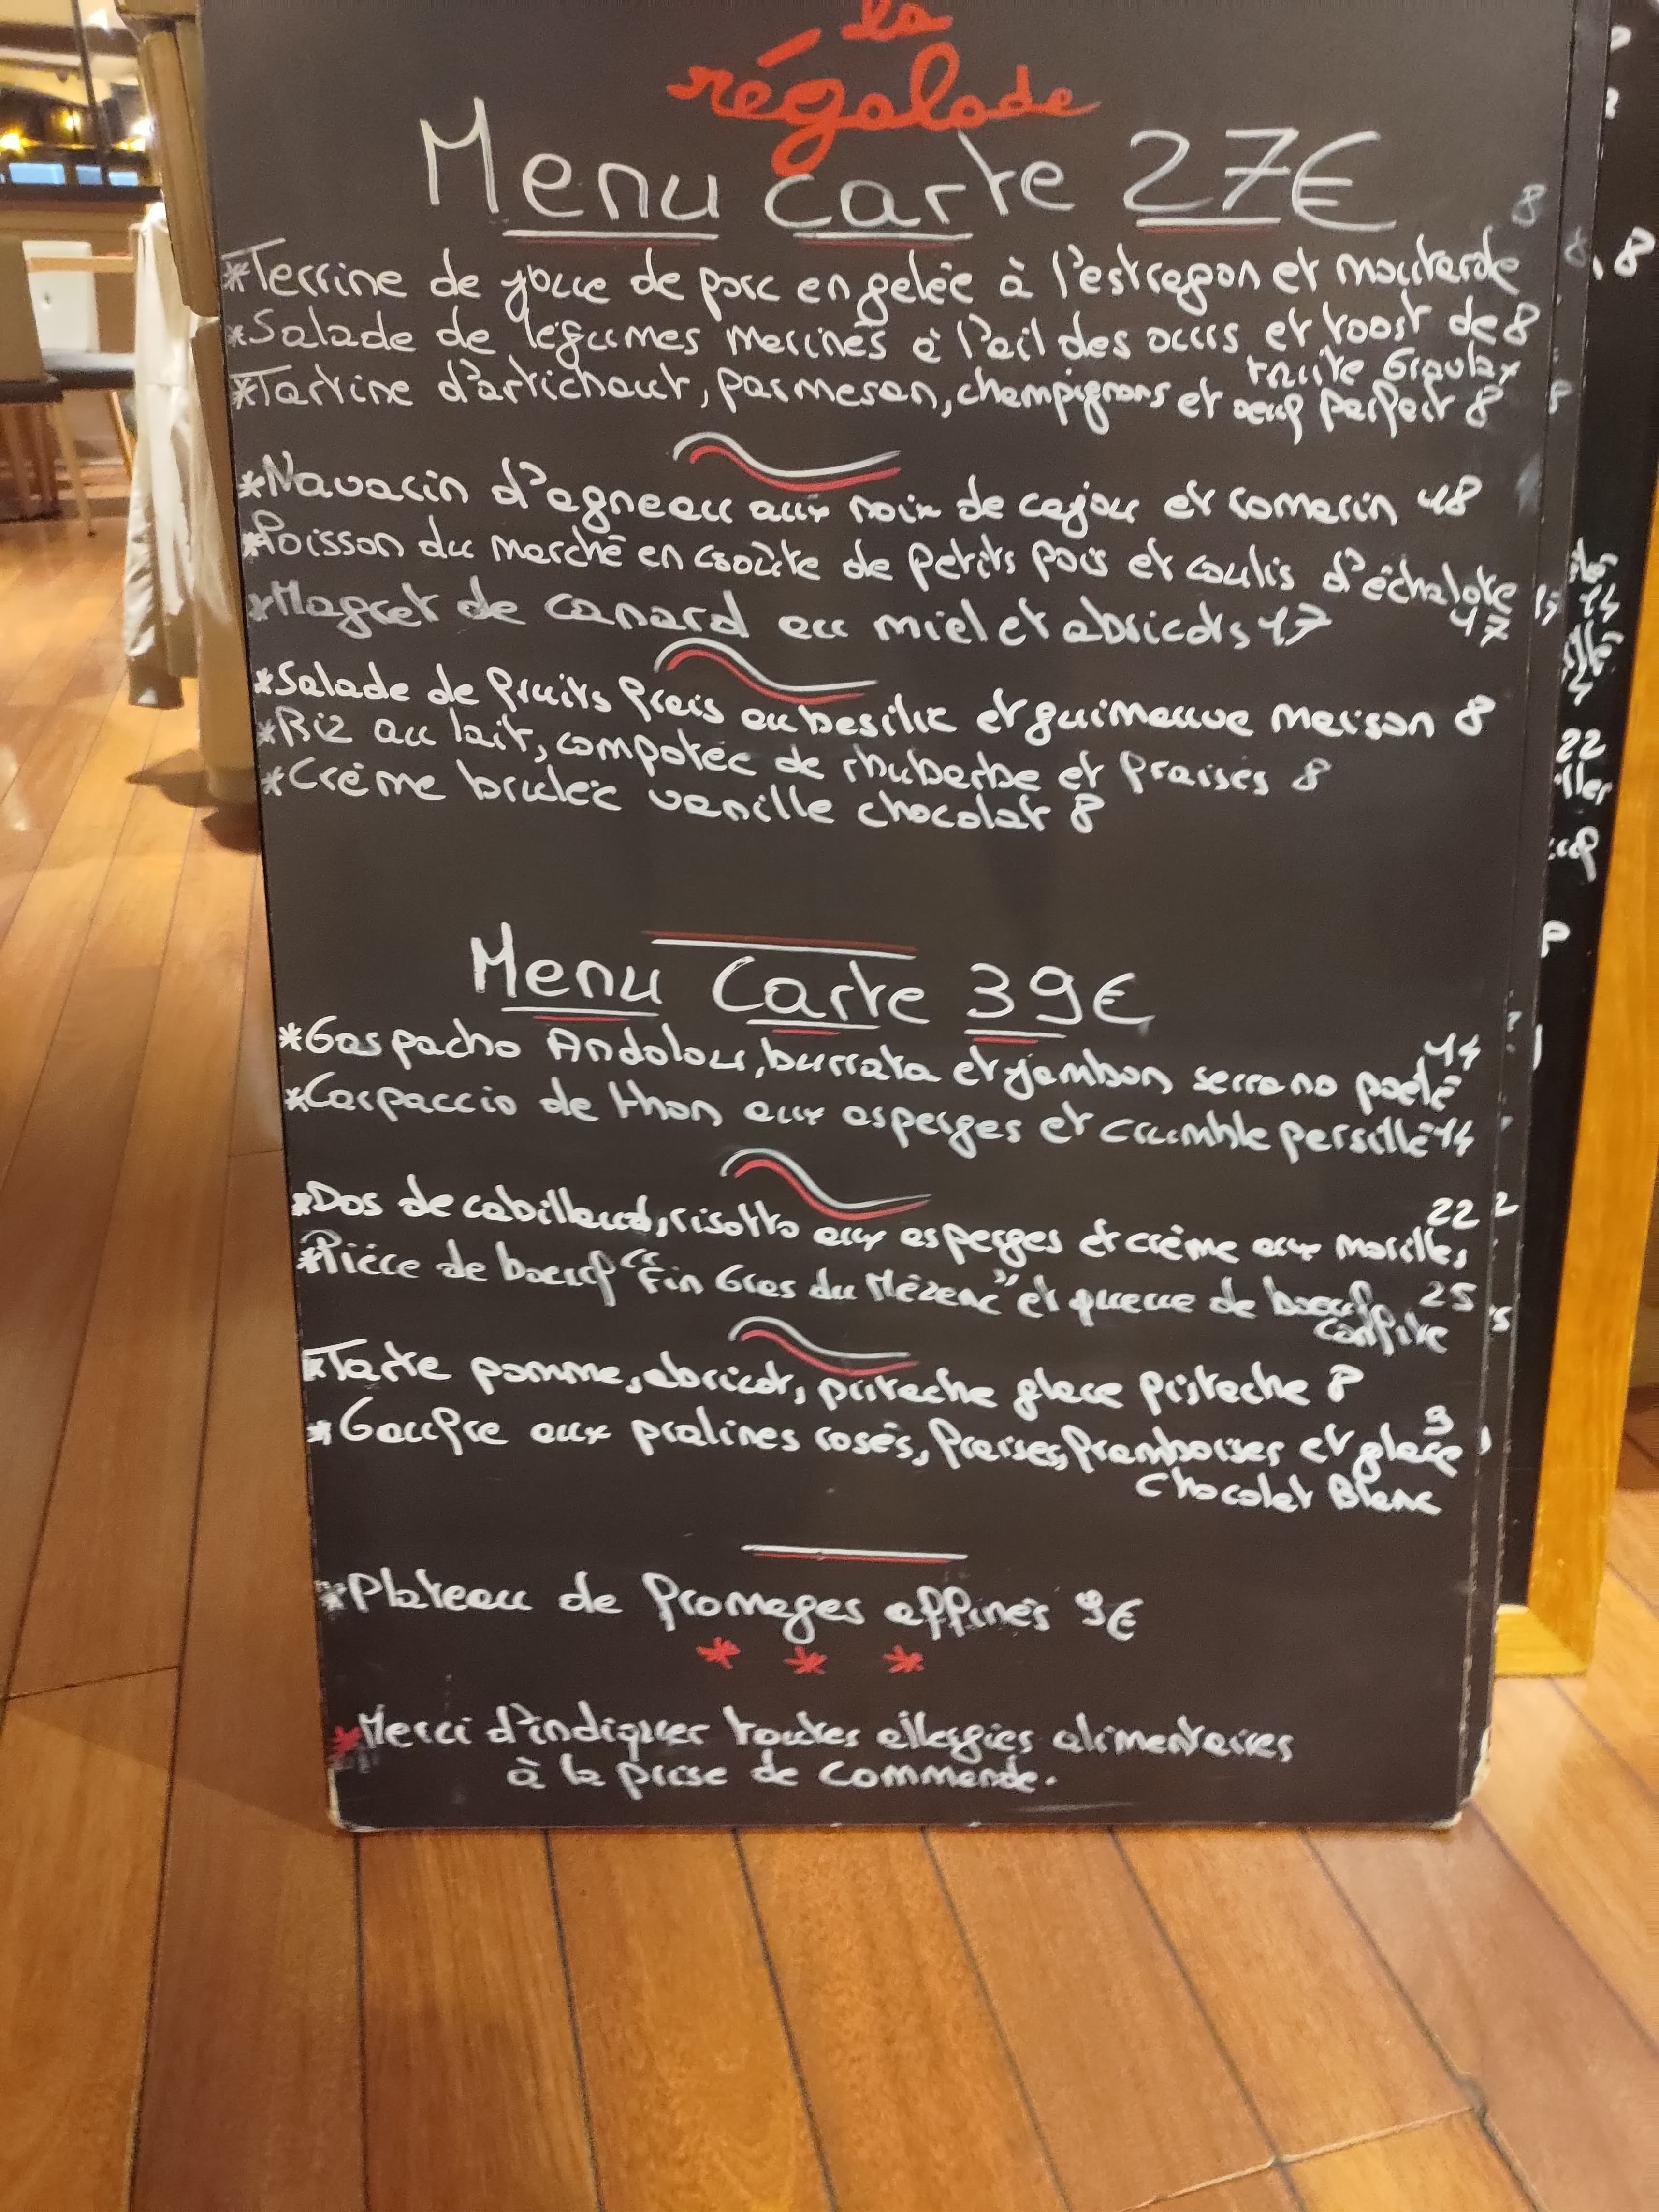 la
régalade
Menu carte 27€
*Terrine de joue de porc en gelée à l'estragon et moutarde 8
*Salade de légumes marinés à l'ail des ours et toast de 8
truite Gravlax
*Tartine d'artichaut, parmesan, champignons et oeuf parfait 8
*Navarin d'agneau aux noix de cajou et romarin 18
*Poisson du marché en croûte de petits pois et coulis d'échalote
17
*Magret de canard au miel et abricots 17
*Salade de fruits frais au basilic et guimauve maison 8
*Riz au lait, compotée de rhubarbe et fraises 8
*Crème brulée vanille chocolat 8
Menu Carte 39€
*Gaspacho Andalou, burrata et jambon serrano poelé 14
*Carpaccio de thon aux asperges et crumble persillé 14
*Dos de cabillaud, risotto aux asperges et crème aux morilles 22
*Pièce de boeuf "Fin Gras du Mézenc" et queue de boeuf 25
confite
*Tarte pomme, abricot, pistache glace pistache 8
*Gaufre aux pralines rosés, fraises, framboises et glace 9
Chocolat Blanc
*Plateau de fromages affinés 9€
* * *
*Merci d'indiquer toutes allergies alimentaires
à la prise de commande.